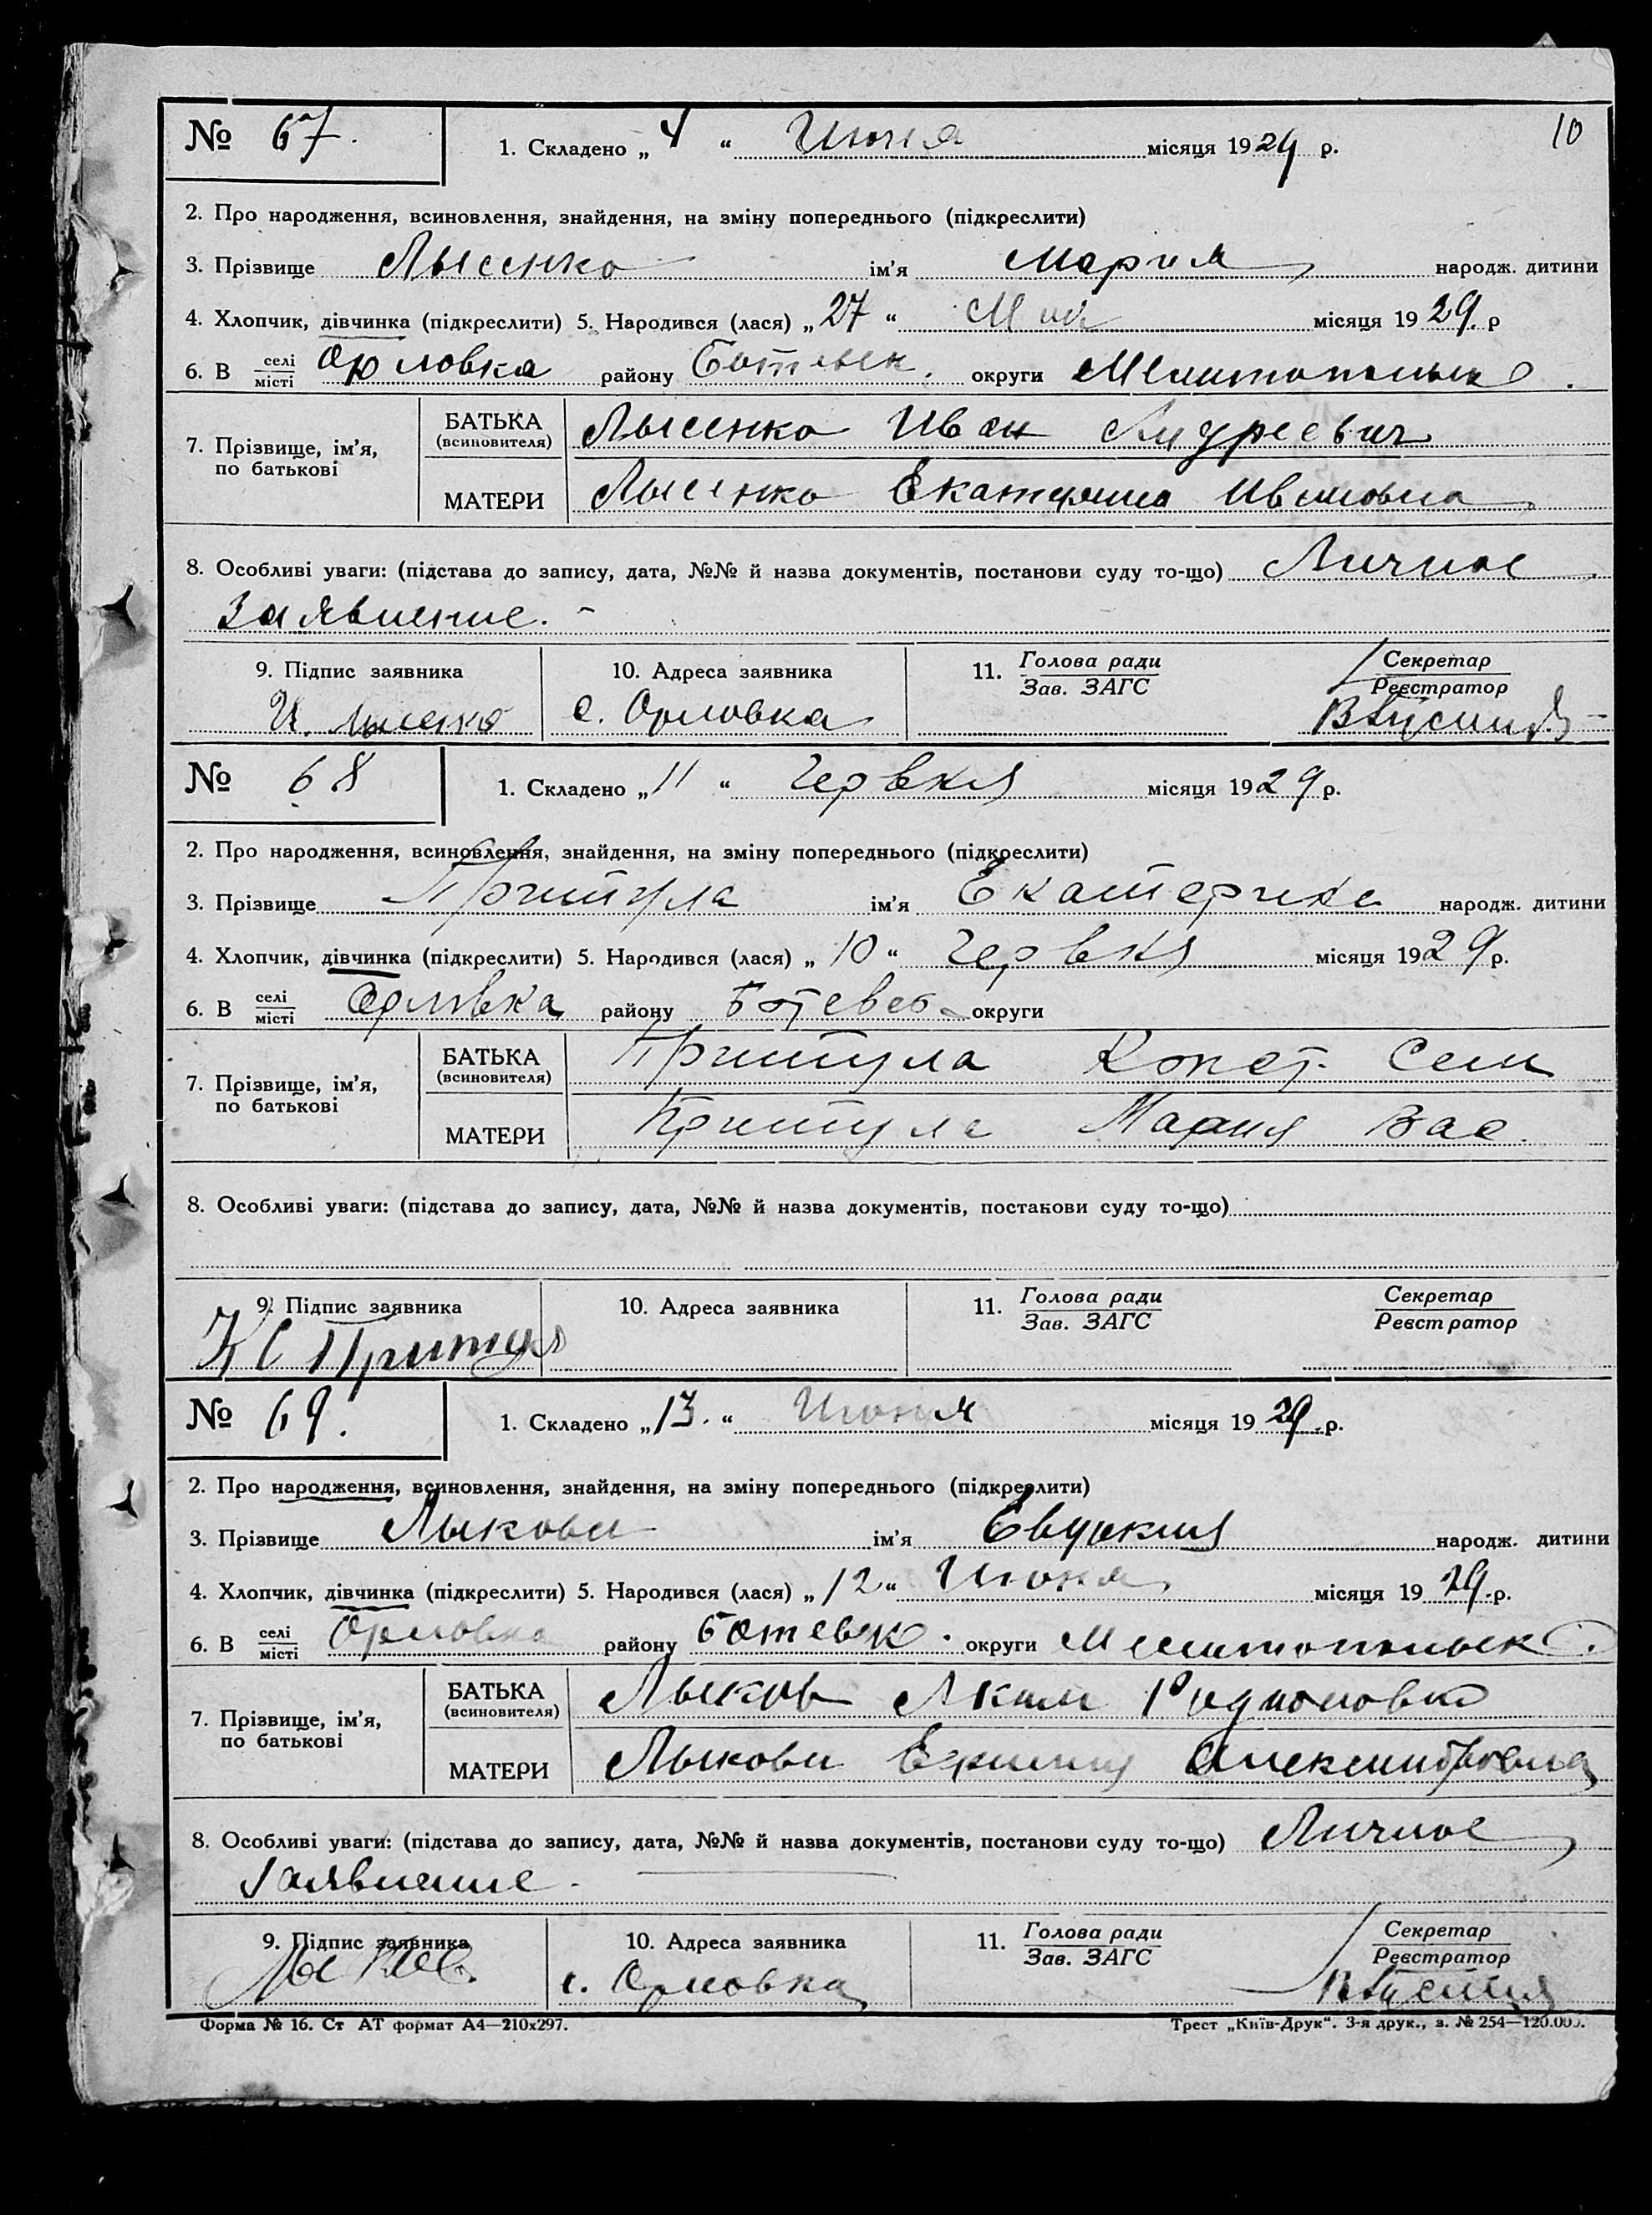 10
№ 67. 1. Складено „4“ Июня місяця 1929 р.
2. Про народження, всиновлення, знайдення, на зміну попереднього (підкреслити)
3. Прізвище Лысенко ім’я Мария народж. дитини
4. Хлопчик, дівчинка (підкреслити) 5. Народився (лася) „27“ Мая місяця 1929. р
6. В селі місті Орловка району Ботевск. округи Мелитопольск.
7. Прізвище, ім’я, по батькові
БАТЬКА (всиновителя) Лысенко Иван Андреевич
МАТЕРИ Лысенко Екатерина Ивановна
8. Особливі уваги: (підстава до запису, дата, №№ й назва документів, постанови суду то-що) Личное
заявление. -
9. Підпис заявника 10. Адреса заявника 11. Голова ради Зав. ЗАГС Секретар Реєстратор
И. Лысенко с. Орловка
№ 68 1. Складено „11“ Червня місяця 1929 р.
2. Про народження, всиновлення, знайдення, на зміну попереднього (підкреслити)
3. Прізвище Притула ім’я Екатерина народж. дитини
4. Хлопчик, дівчинка (підкреслити) 5. Народився (лася) „10“ Червня місяця 1929 р.
6. В селі місті Орлівка району Ботевск округи
7. Прізвище, ім’я, по батькові
БАТЬКА (всиновителя) Притула Конст. Сем
МАТЕРИ Притула Мария Вас.
8. Особливі уваги: (підстава до запису, дата, №№ й назва документів, постанови суду то-що)
9. Підпис заявника 10. Адреса заявника 11. Голова ради Зав. ЗАГС Секретар Реєстратор
КС Притула
№ 69. 1. Складено „13.“ Июня місяця 1929. р.
2. Про народження, всиновлення, знайдення, на зміну попереднього (підкреслити)
3. Прізвище Лыкова ім’я Евдокия народж. дитини
4. Хлопчик, дівчинка (підкреслити) 5. Народився (лася) „12“ Июня місяця 1929. р.
6. В селі місті Орловка району Ботевск. округи Мелитопольск.
7. Прізвище, ім’я, по батькові
БАТЬКА (всиновителя) Лыков Аким
МАТЕРИ Лыкова Александровна
8. Особливі уваги: (підстава до запису, дата, №№ й назва документів, постанови суду то-що) Личное
заявление.
9. Підпис заявника 10. Адреса заявника 11. Голова ради Зав. ЗАГС Секретар Реєстратор
Лыков с. Орловка
Форма № 16. Ст АТ формат А4—210х297. Трест „Київ-Друк“. 3-я друк., з. № 254—120.000.